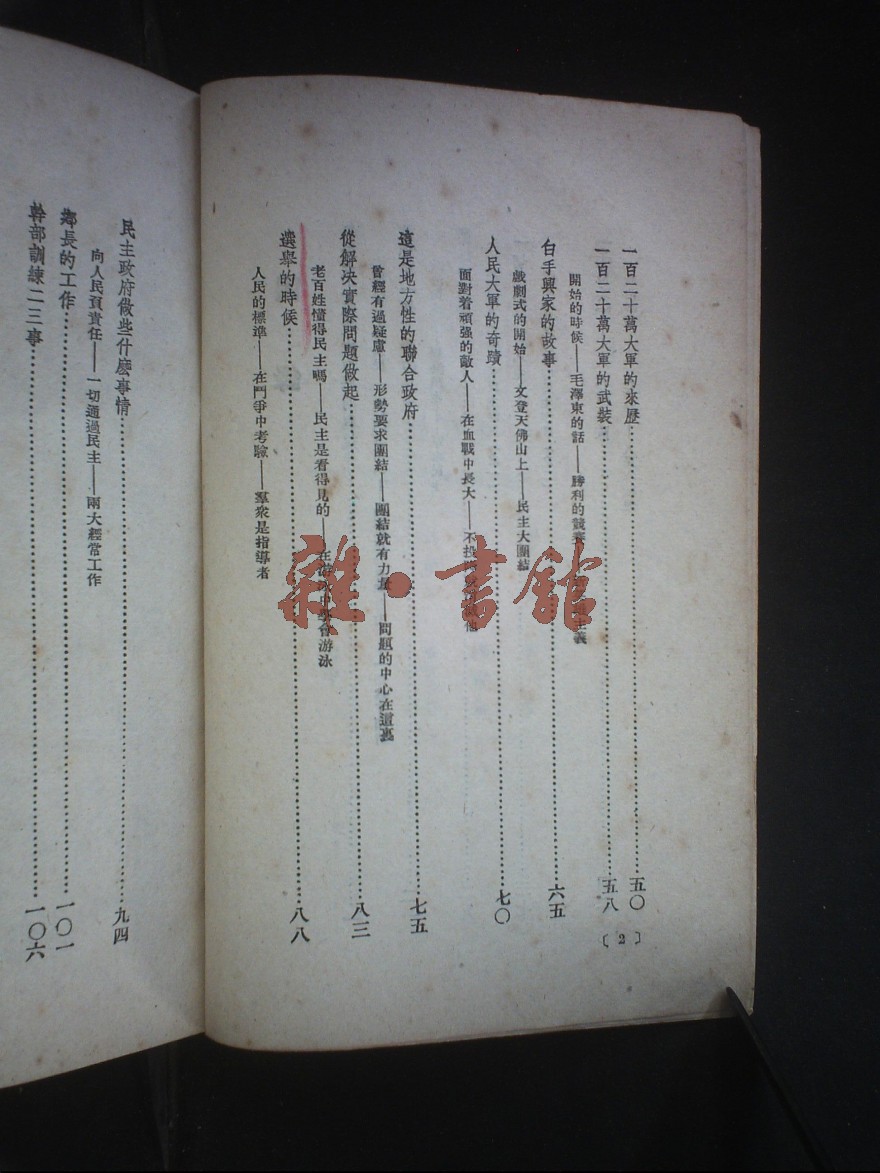 一百二十萬大軍的來歷…………五〇
一百二十萬大軍的武裝…………五八
開始的時候——毛澤東的話——勝利的競賽 主義
白手興家的故事…………六五
戲劇式的開始——文登天佛山上——民主大團結
人民大軍的奇蹟…………七〇
面對着頑强的敵人——在血戰中長大——不投 他
這是地方性的聯合政府…………七五
曾經有過疑慮——形勢要求團結——團結就有力量——問題的中心在這裏
從解決實際問題做起…………八三
老百姓懂得民主嗎——民主是看得見的——在 游泳
選舉的時候…………八八
人民的標準——在鬥爭中考驗——羣衆是指導者
〔2〕
民主政府做些什麽事情…………九四
向人民負責任——一切通過民主——兩大經常工作
鄉長的工作…………一〇一
幹部訓練二三事…………一〇六
雜·書館